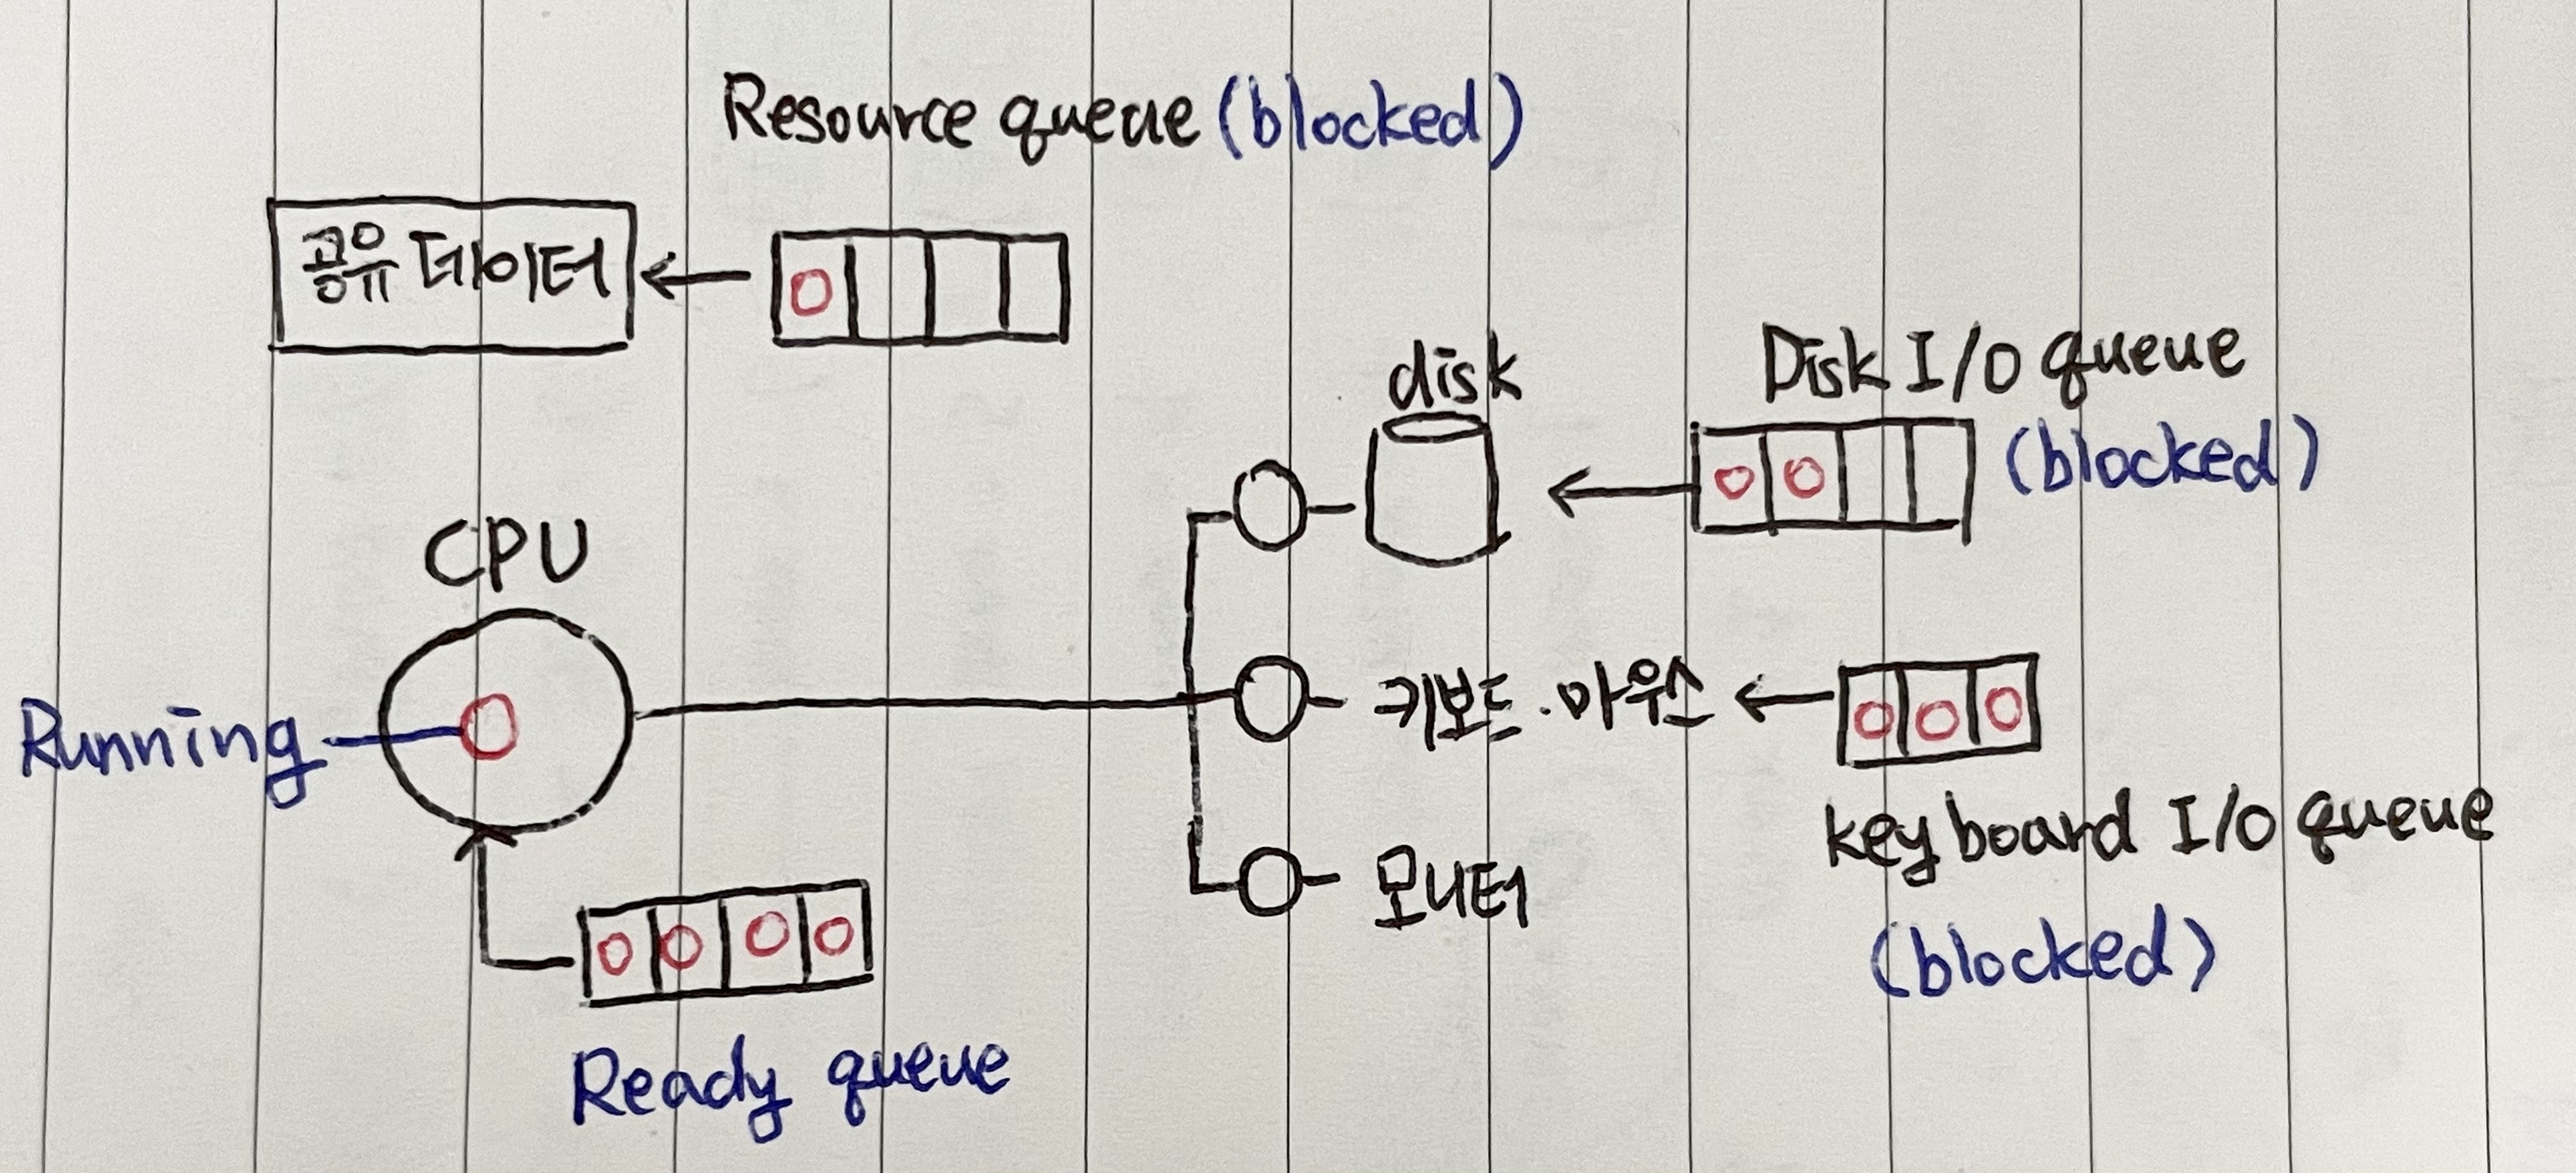 Resource queue (blocked)
공유 데이터
disk
Disk I/O queue
(blocked)
CPU
Running
키보드·마우스
keyboard I/O queue
(blocked)
모니터
Ready queue